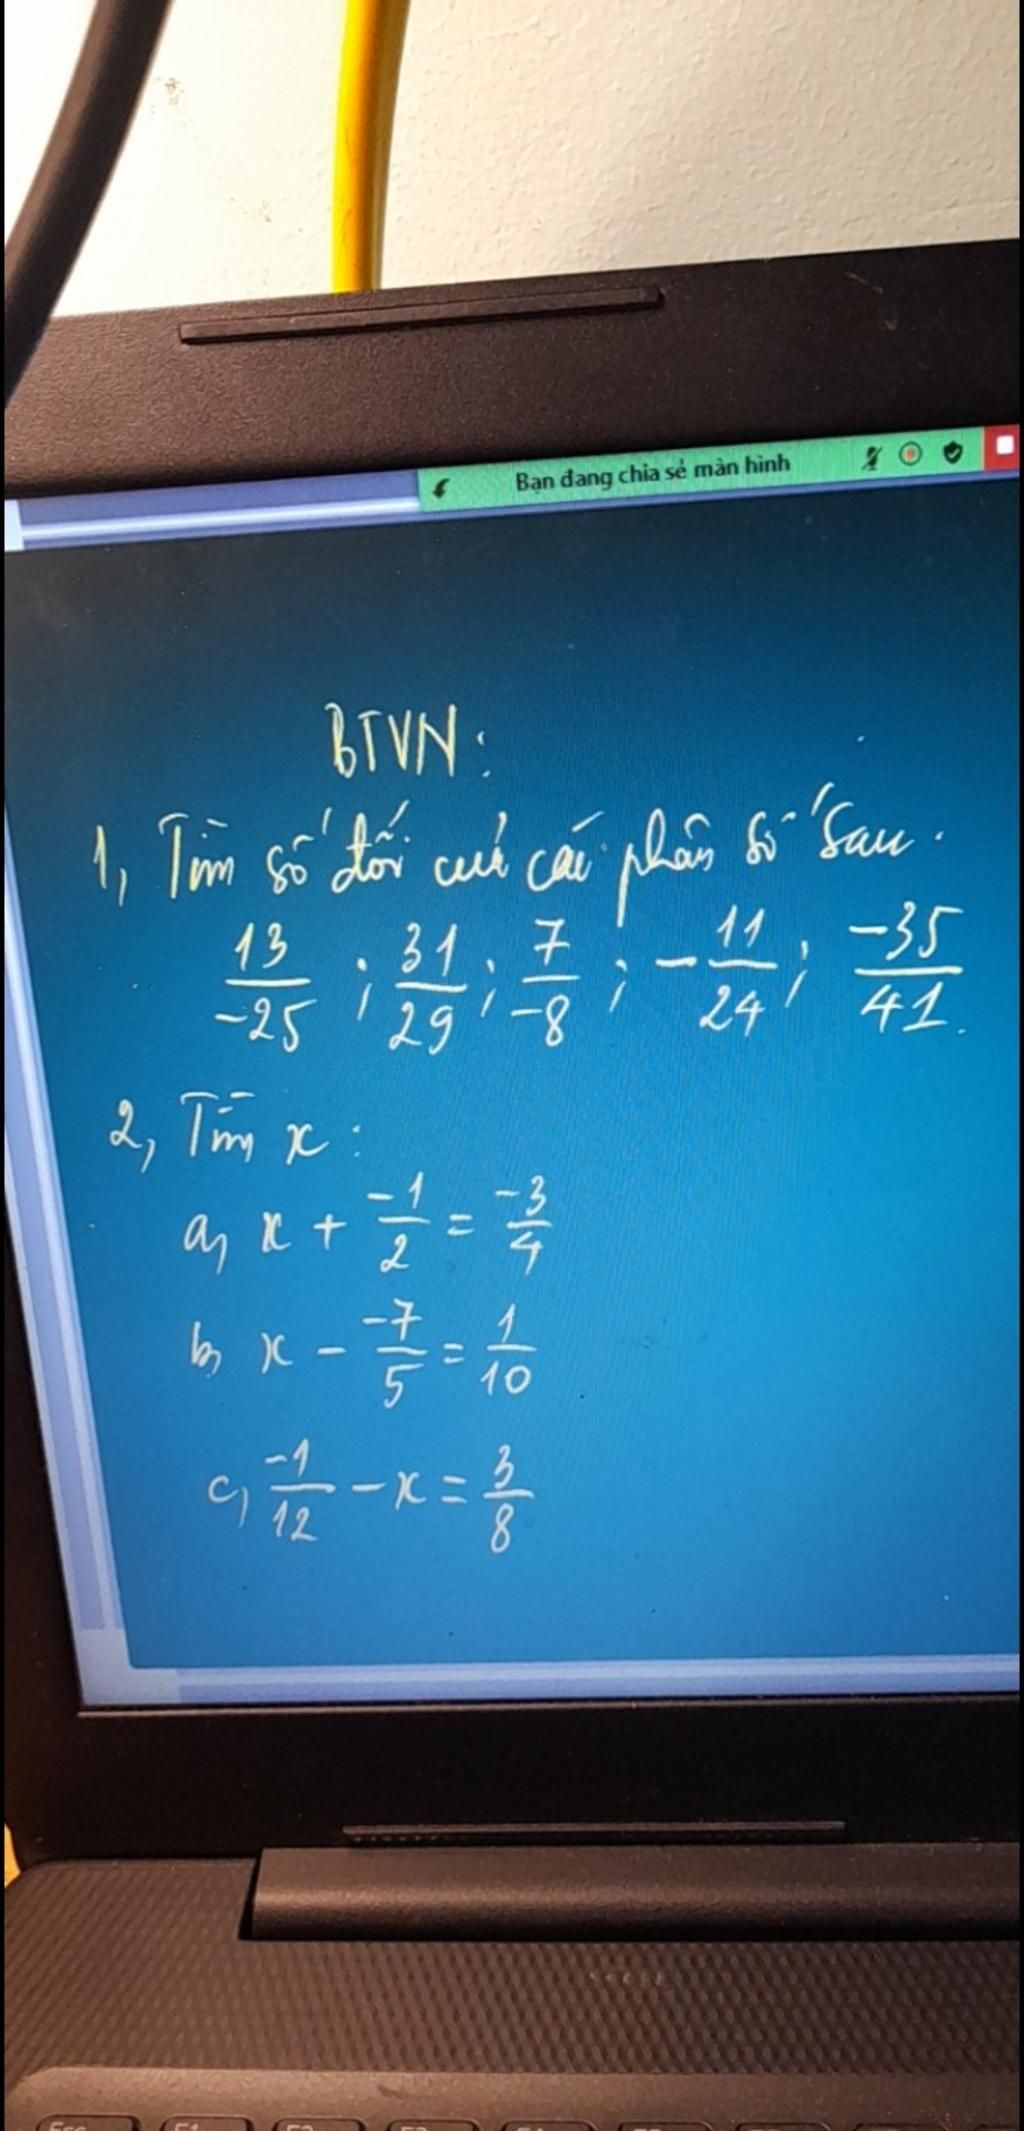 Bạn đang chia sẻ màn hình
BTVN:
1, Tìm số đối của các phân số sau.
13/-25 ; 31/29 ; 7/-8 ; -11/24 ; -35/41.
2, Tìm x:
a, x + -1/2 = -3/4
b, x - -7/5 = 1/10
c, -1/12 - x = 3/8